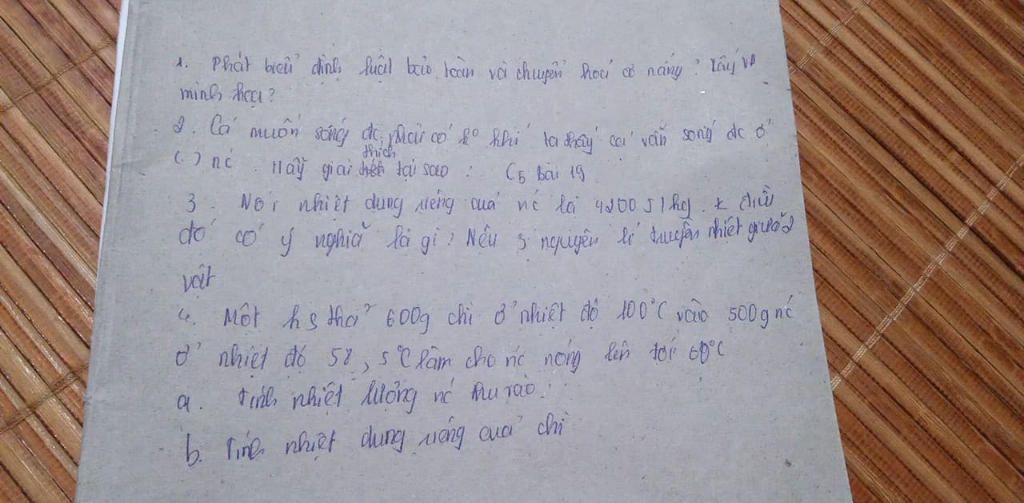 1. Phát biểu định luật bảo toàn và chuyển hoá cơ năng? Lấy VD
minh hoạ?
2. Cá muốn sống đc phải có k° khí ta thấy cá vẫn sống đc ở
( ) nc Hãy giải thích tại sao? C5 bài 19
3. Nói nhiệt dung riêng của nc là 4200 J/kg.k điều
đó có ý nghĩa là gì? Nêu 3 nguyên lí truyền nhiệt giữa 2
vật
4. Một hs thả 600g chì ở nhiệt độ 100°C vào 500g nc
ở nhiệt độ 58,5°C làm cho nc nóng lên tới 60°C
a. Tính nhiệt lượng nc thu vào?
b. Tính nhiệt dung riêng của chì